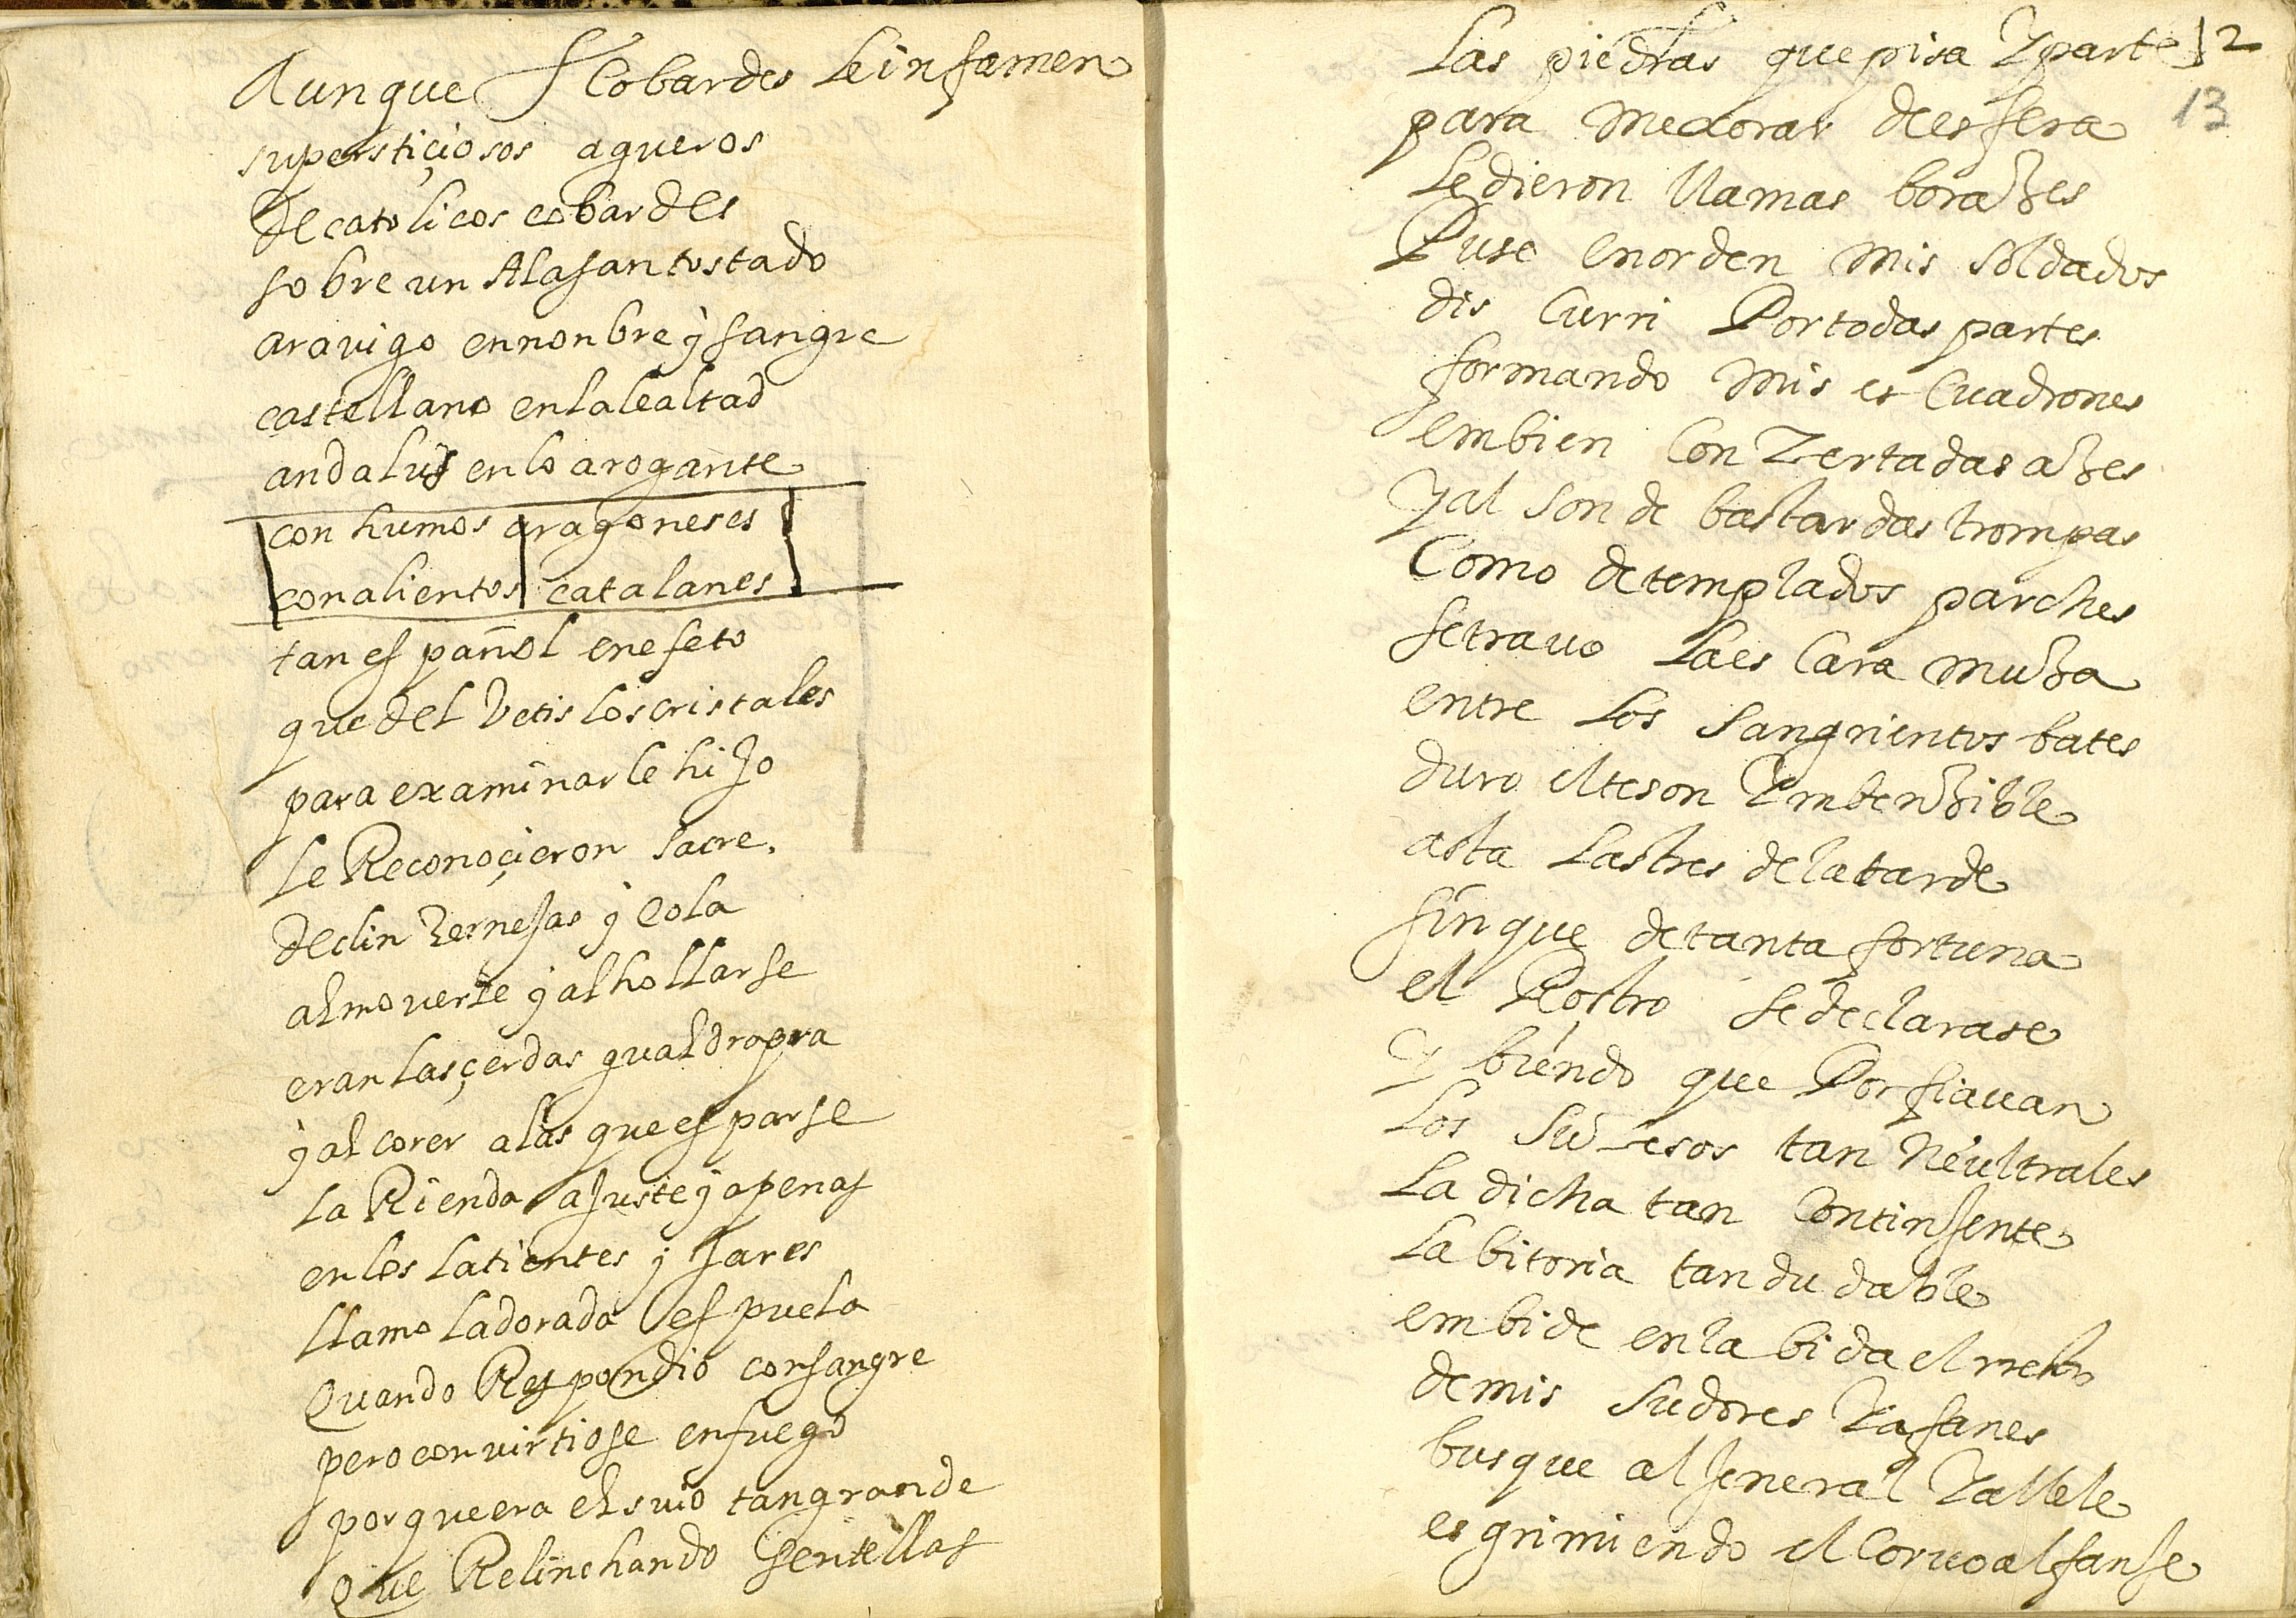 Aunque Cobardes Leinfamen
supersticiosos agueros
De catolicos cobardes
sobre un Alasan tostado
aravigo ennonbre y sangre
castellano enlalealtad
andalus enlo arogante
con humos aragoneses
con alientos catalanes
tan español enefeto
que del Vetis los cristales
para examinarle hijo
Le Reconoçieron sacre.
De clin zernejas y cola
al moverse y al hollarse
eran las çerdas gualdrapra
y al corer alas que esparse
La Rienda ajuste y apenas
en los latientes yjares
llamo ladorada espuela
Quando Respondio consangre
pero convirtiose enfuego
porque era elsuio tangrande
Que Relinchando sentellas
Las piedras que pisa Yparte 12
13
para mexoras deesfera
Le dieron llamas borazes
Puse enorden mis soldados
dis Curri Portodas partes
formando mis es Cuadrones
embien ConZertadas azes
Yal son de bastardas trompas
Como detemplados parches
setravo Laes Cara muza
entre Los sangrientos bates
duro elteson Ymbenzible
asta Lastres delatarde
sinque detanta fortuna
el Rostro sedeclarase
y biendo que Porfiavan
Los Suzesos tan Neultrales
La dicha tan Continjente
La bitoria tan dudable
embide enla bida el rresto
demis Sudores Yafanes
busque al Jeneral Yallele
esgrimiendo el Corvoalfanje